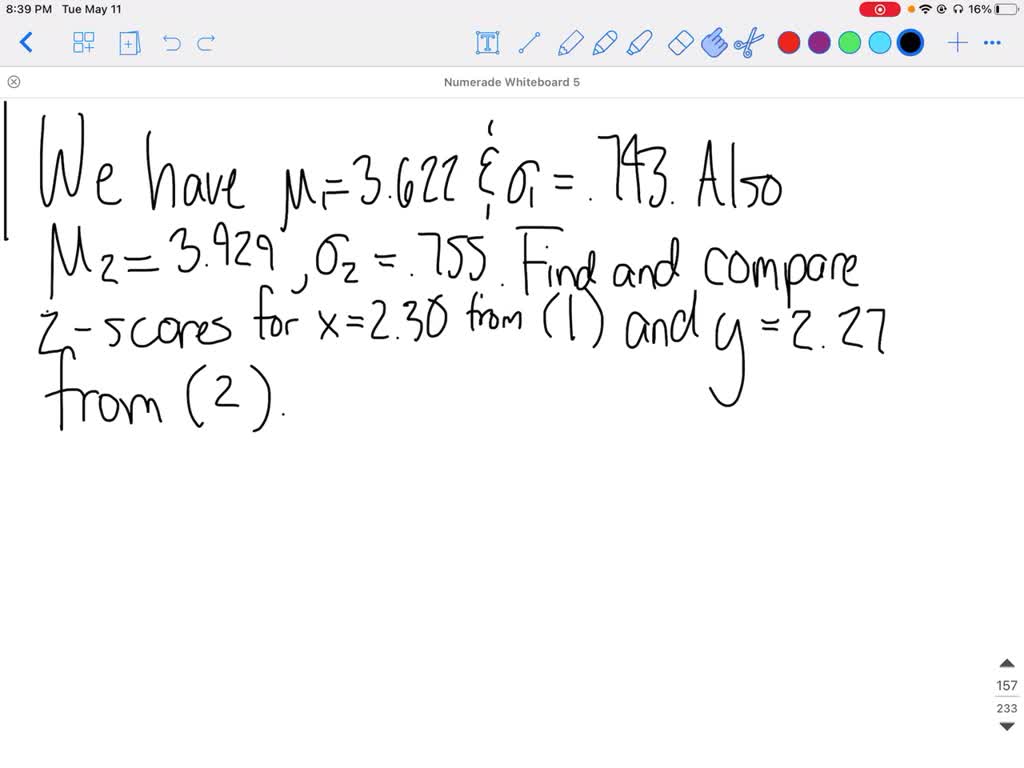 8:39 PM Tue May 11 16%
T
Numerade Whiteboard 5
We have μ₁=3.622 & σ₁=.743. Also
M₂=3.929, σ₂=.755. Find and compare
z-scores for x=2.30 from (1) and y=2.27
from (2).
157
233